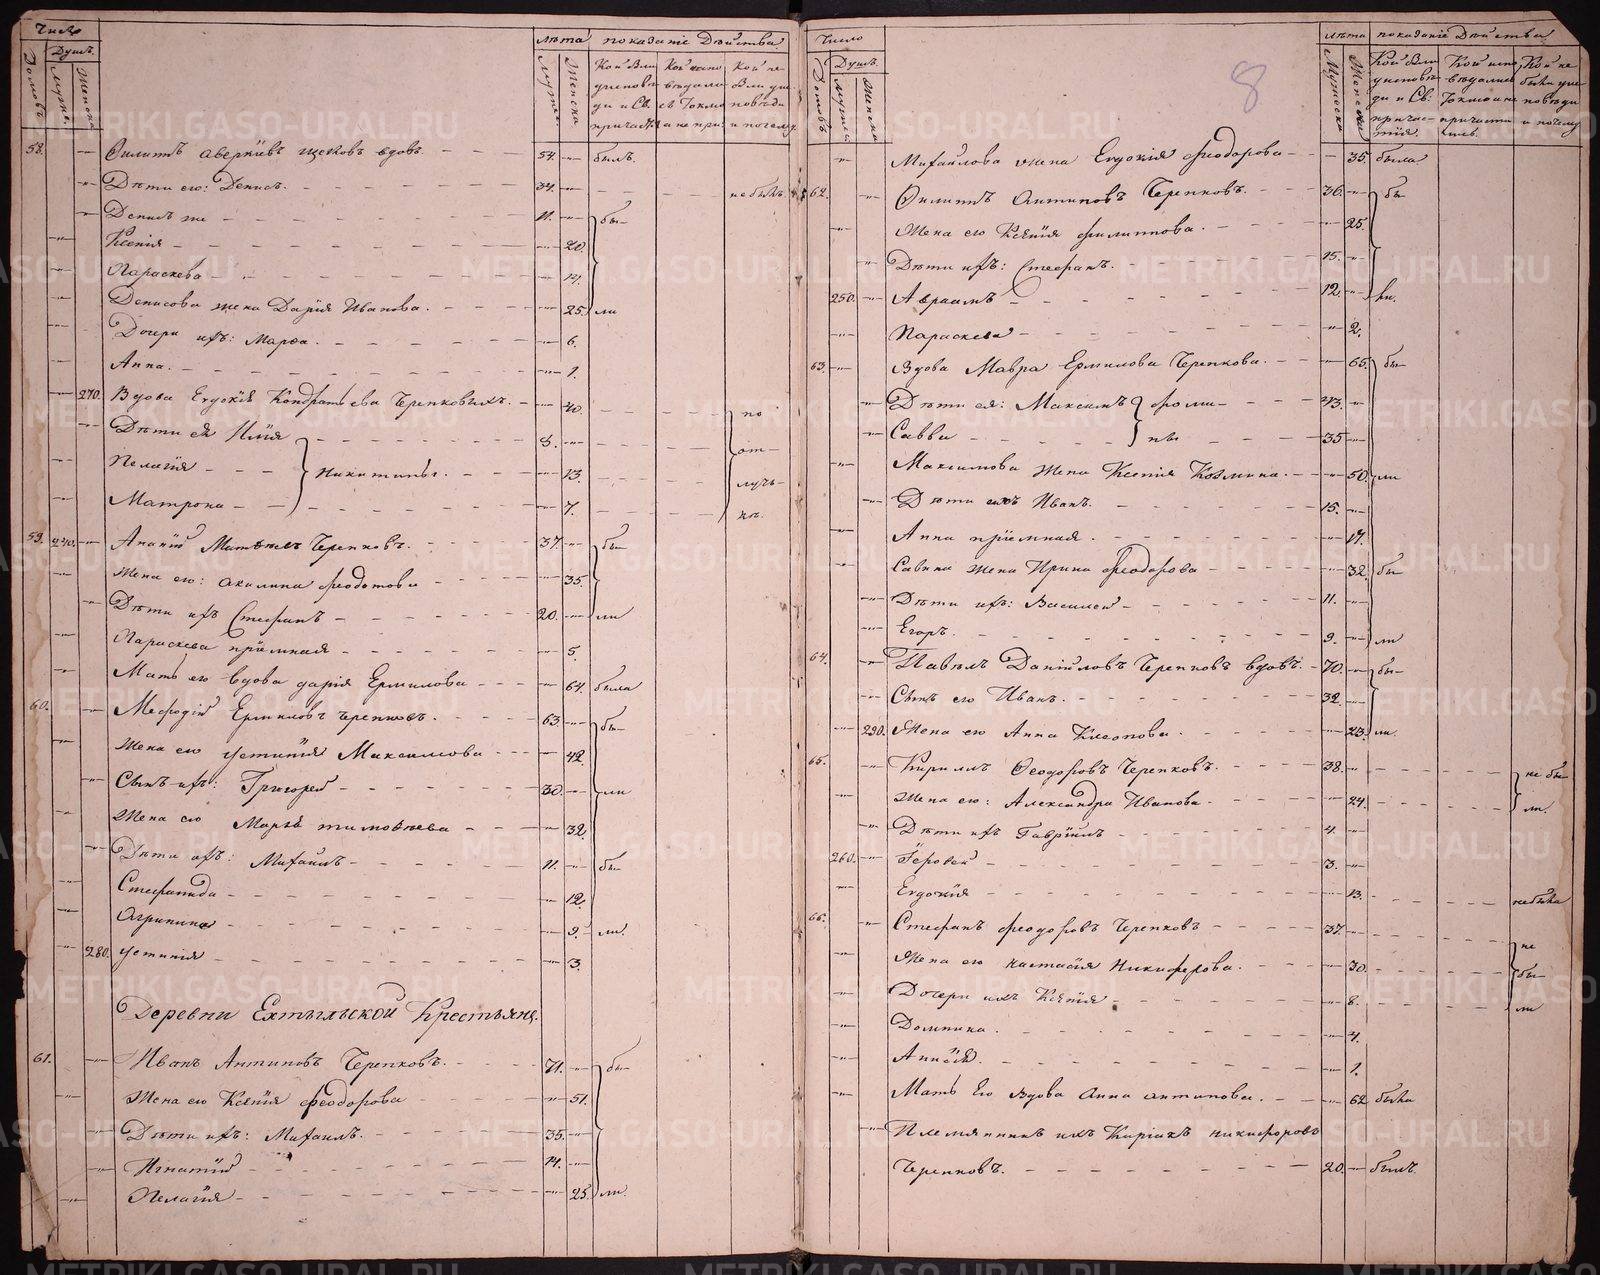 Число
Домовъ
Душъ.
Мужес.
Женска
лѣта
показаніе Дѣйства
Мужес.
Женска.
Кои Бы
ди и Св.
58.
Филипъ Аверкіевъ вдовъ. 54. былъ.
Дѣти его: Денисъ. 34. не былъ
Денисъ же 11. бы-
Ксенія 20.
Параскева 14.
Денисова жена Дарія Иванова. 25. ли
Дочери ихъ: Марѳа. 6.
Анна. 1.
270. Вдова Евдокія Кондратьева Черепковыхъ. 40. по
Дѣти ея Илія 8. от-
Пелагія Никитины. 13. луч-
Матрона 7. кѣ.
59. 240. Ананій Матвѣевъ Черепковъ. 37. бы-
Жена его: Акилина Ѳеодотова 35.
Дѣти ихъ Стефанъ 20. ли
Параскева пріемная 5.
Мать его вдова Дарія Ермилова 64. была
60. Меѳодій Ермиловъ Черепковъ. 63. бы-
Жена его Устинія Максимова 42.
Сынъ ихъ: Григорей 30. ли
Жена его Марья Тимоѳеева 32.
Дѣти ихъ: Михаилъ 11. бы-
Стефанида 12.
Агрипина 9. ли.
280. Устинія 3.
Деревни Ехтыльской Крестьяне.
61. Иванъ Антиповъ Черепковъ. 71. бы-
Жена его Ксенія Ѳеодорова 51.
Дѣти ихъ: Михаилъ. 35.
Игнатій 14.
Пелагія 25. ли.
8
Число
Домовъ
Душъ.
Мужес
Женска
лѣта
показаніе Дѣйства
Мужеска
Женска
Михайлова жена Евдокія Ѳеодорова 35. была
62. Филипъ Антиповъ Черепковъ. 36. бы-
Жена его Ксенія Филиппова. 25.
Дѣти ихъ: Стефанъ. 15.
250. Авраамъ 12. ли.
Параскева 2.
63. Вдова Мавра Ермилова Черепкова. 65. бы-
Дѣти ея: Максимъ Ѳоми- 43.
Савва ны 35
Максимова жена Ксенія Козмина. 50. ли
Дѣти ихъ Иванъ. 15.
Анна пріемная. 17.
Савина жена Ирина Ѳеодорова 32. бы
Дѣти ихъ: Василей 11.
Егоръ. 9. ли
64. Павелъ Даніиловъ Черепковъ вдовъ. 70. бы-
Сынъ его Иванъ. 32.
290. Жена его Анна Клеопова. 23. ли.
65. Кирилъ Ѳеодоровъ Черепковъ. 38. не бы-
Жена его: Александра Иванова. 24. ли.
Дѣти ихъ Гавріилъ 4.
260. 3.
Евдокія 13. не была
66. Стефанъ Ѳеодоровъ Черепковъ 37. не
Жена его Настасія Никифорова. 30. бы-
Дочери ихъ Ксенія 8. ли
Домника. 4.
Анисія. 1.
Мать Его вдова Анна Антипова. 62 была
Племянникъ ихъ Киріакъ Никифоровъ
Черепковъ. 20. былъ.